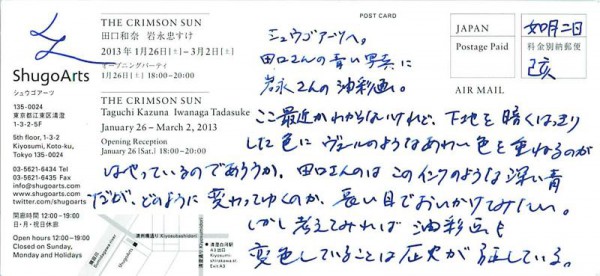 THE CRIMSON SUN
田口和奈 岩永忠すけ
2013年1月26日[土]−3月2日[土]
オープニングパーティ
1月26日[土] 18:00−20:00
ShugoArts
シュウゴアーツ
135-0024
東京都江東区清澄
1-3-2-5F
5th floor, 1-3-2
Kiyosumi, Koto-ku,
Tokyo 135-0024
03-5621-6434 Tel
03-5621-6435 Fax
info@shugoarts.com
www.shugoarts.com
twitter.com/shugoarts
開廊時間 12:00−19:00
日・月・祝日休廊
Open hours 12:00−19:00
Closed on Sunday,
Monday and Holidays
THE CRIMSON SUN
Taguchi Kazuna Iwanaga Tadasuke
January 26 – March 2, 2013
Opening Reception
January 26 [Sat.] 18:00−20:00
清洲橋通り
Kiyosubashidori
ShugoArts
清澄白河駅
A3出口
Kiyosumi-
shirakawa st.
Exit.A3
POST CARD
JAPAN
Postage Paid
料金別納郵便
AIR MAIL
如月二日
シュウゴアーツへ。
田口さんの青い写真に
岩永さんの油彩画。
ここ最近かわからないけれど、下地を暗くはっきり
した色にヴェールのようなあわい色を重ねるのが
はやっているのであろうか。田口さんのはこのインクのような深い青
だが、どのように変わってゆくのか、長い目でおいかけてみたい。
しかし考えてみれば油彩画も
変色していることは歴史が証している。